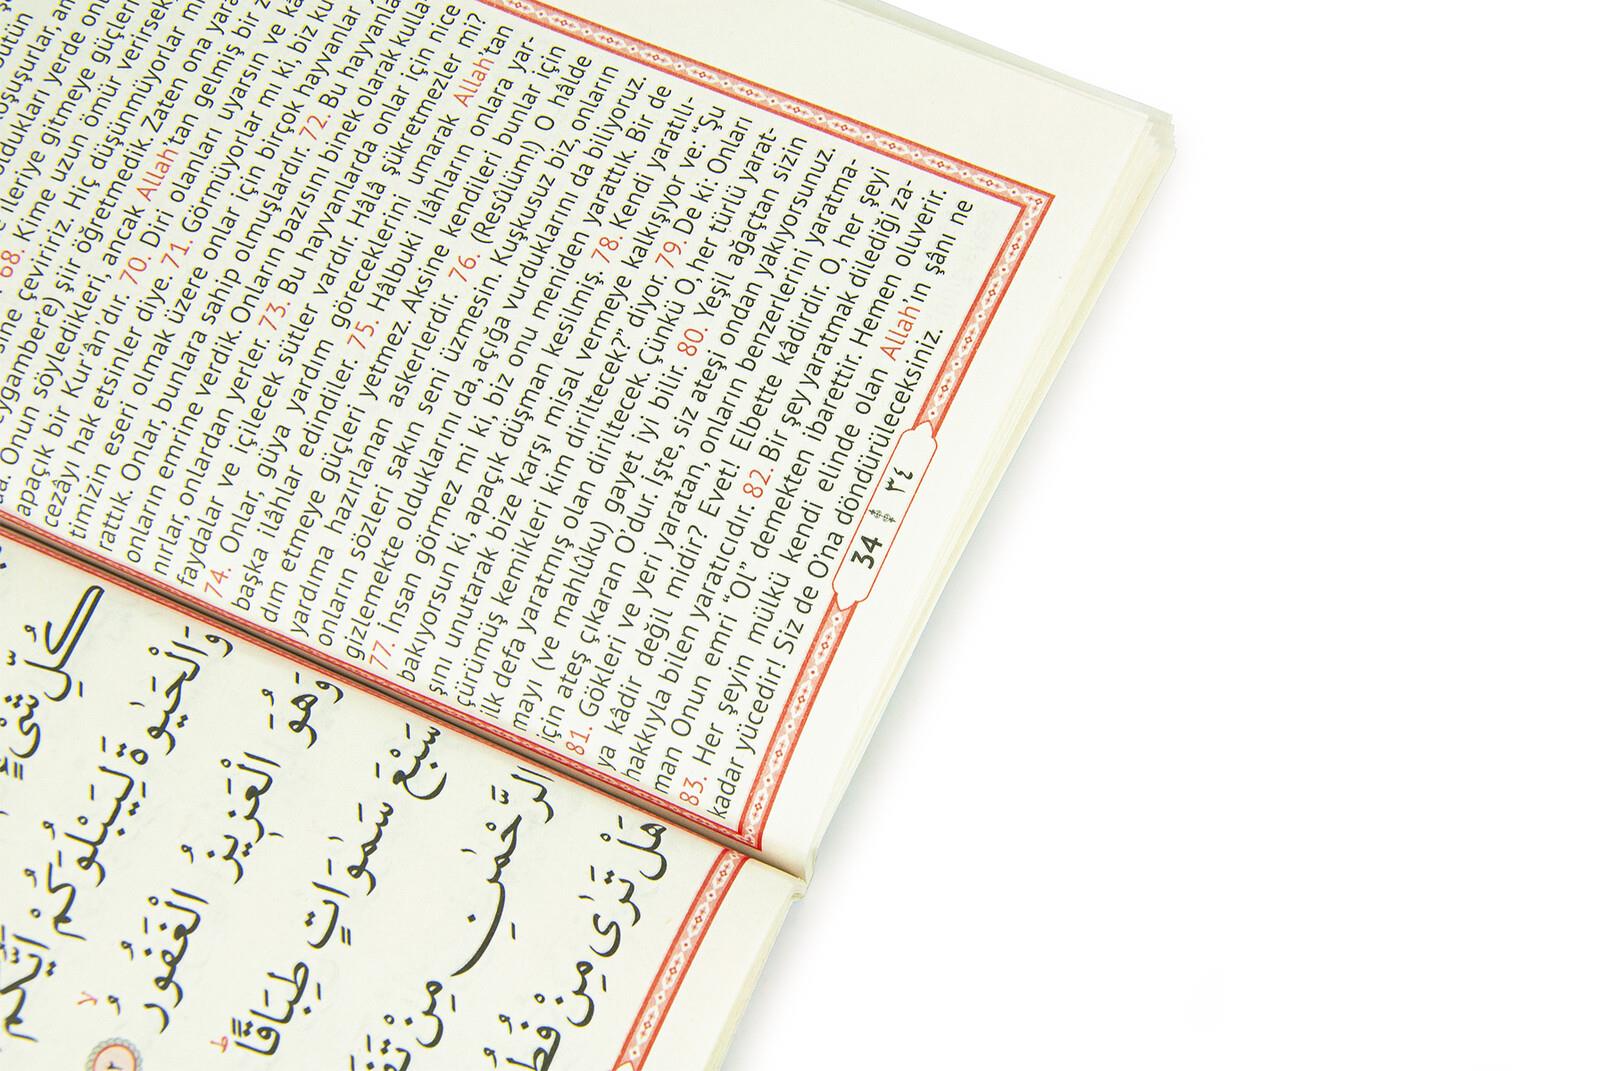 68. Kime uzun ömür verirsek,
sine çeviririz. Hiç düşünmüyorlar mı
ygambere) şiir öğretmedik. Zaten ona yara
Onun söyledikleri, ancak Allah'tan gelmiş bir z
apaçık bir Kur'ân'dır. 70. Diri olanları uyarsın ve kâ
cezâyı hak etsinler diye. 71. Görmüyorlar mı ki, biz ku
timizin eseri olmak üzere onlar için birçok hayvanlar
rattık. Onlar, bunlara sahip olmuşlardır. 72. Bu hayvanla
onların emrine verdik. Onların bazısını binek olarak kulla-
nırlar, onlardan yerler. 73. Bu hayvanlarda onlar için nice
faydalar ve içilecek sütler vardır. Hâlâ şükretmezler mi?
74. Onlar, güya yardım göreceklerini umarak Allah'tan
başka ilâhlar edindiler. 75. Hâlbuki ilâhların onlara yar-
dım etmeye güçleri yetmez. Aksine kendileri bunlar için
yardıma hazırlanan askerlerdir. 76. (Resûlüm!) O hâlde
onların sözleri sakın seni üzmesin. Kuşkusuz biz, onların
gizlemekte olduklarını da, açığa vurduklarını da biliyoruz.
77. İnsan görmez mi ki, biz onu meniden yarattık. Bir de
bakıyorsun ki, apaçık düşman kesilmiş. 78. Kendi yaratılı-
şını unutarak bize karşı misal vermeye kalkışıyor ve: "Şu
çürümüş kemikleri kim diriltecek?" diyor. 79. De ki: Onları
ilk defa yaratmış olan diriltecek. Çünkü O, her türlü yarat-
mayı (ve mahlûku) gayet iyi bilir. 80. Yeşil ağaçtan sizin
için ateş çıkaran O'dur. İşte, siz ateşi ondan yakıyorsunuz.
81. Gökleri ve yeri yaratan, onların benzerlerini yaratma-
ya kâdir değil midir? Evet! Elbette kâdirdir. O, her şeyi
hakkıyla bilen yaratıcıdır. 82. Bir şey yaratmak dilediği za-
man Onun emri "Ol" demekten ibarettir. Hemen oluverir.
83. Her şeyin mülkü kendi elinde olan Allah'ın şânı ne
kadar yücedir! Siz de O'na döndürüleceksiniz.
34 ٣٤
كُلِّ شَيْءٍ
وَالْحَيٰوةَ لِيَبْلُوَكُمْ اَيُّكُمْ
وَهُوَ الْعَزِيزُ الْغَفُورُ ۙ ٢
سَبْعَ سَمٰوَاتٍ طِبَاقًا ۜ
الرَّحْمٰنِ مِنْ
هَلْ تَرٰى مِنْ